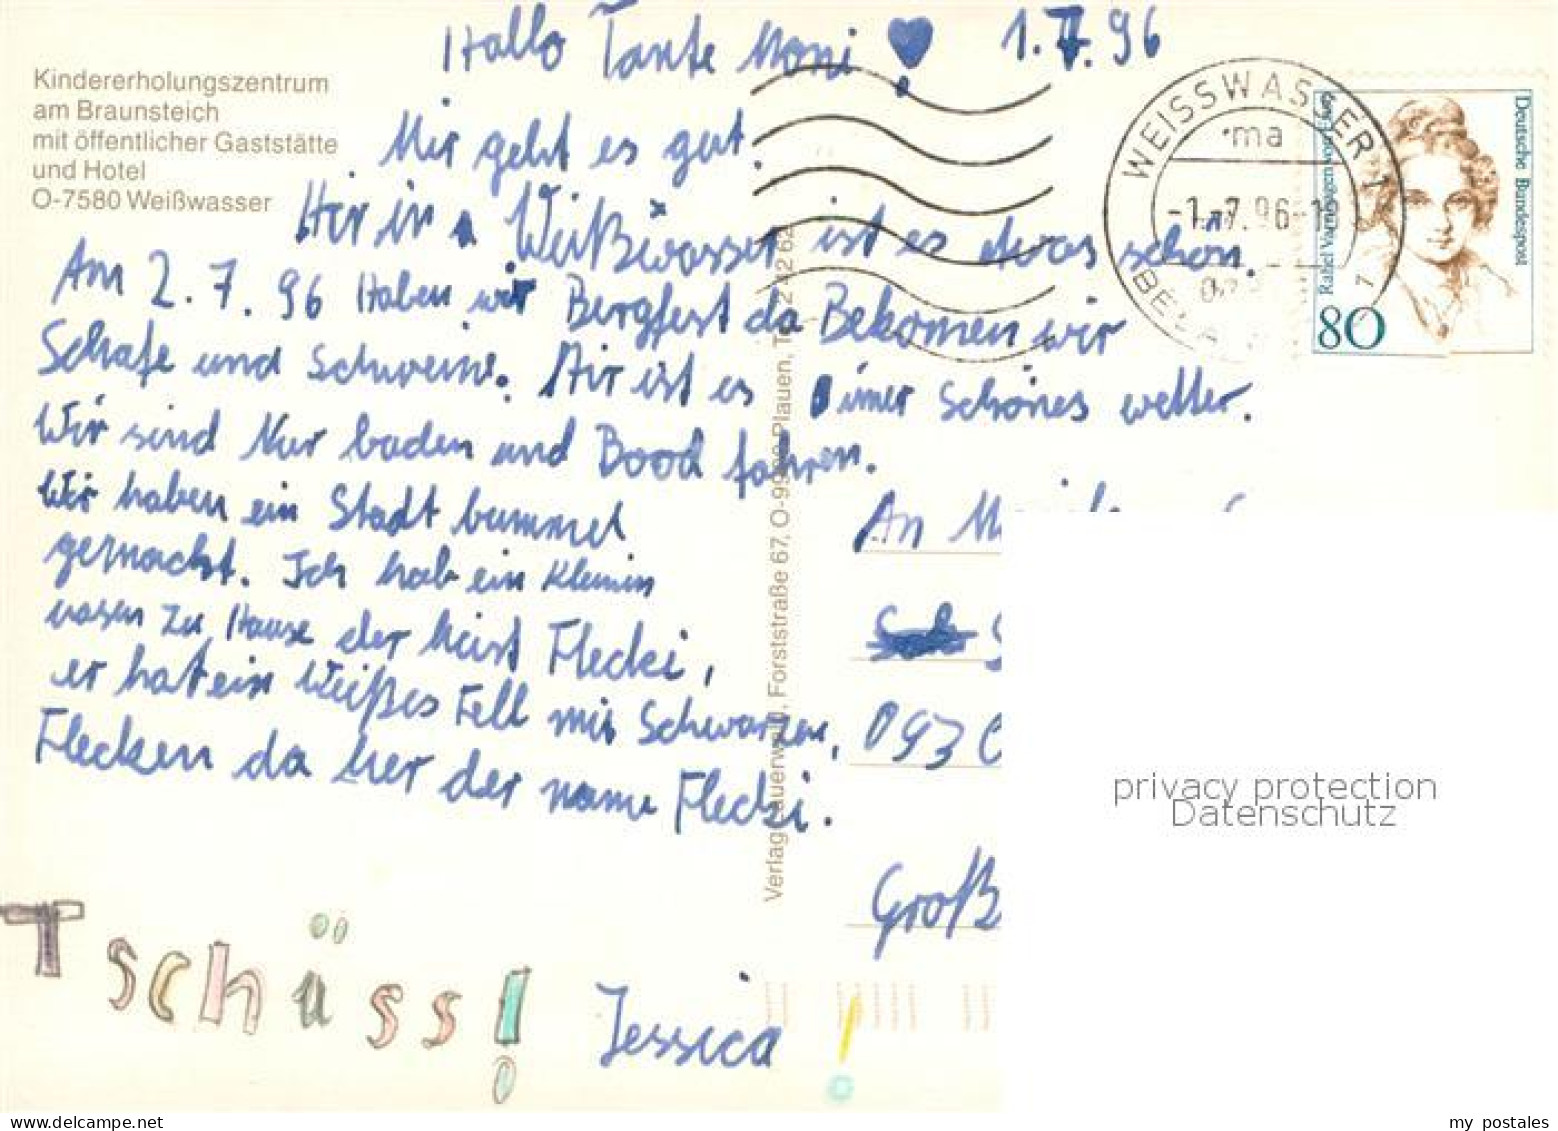 Hallo Tante Moni! 1.7.96
Kindererholungszentrum
am Braunsteich
mit öffentlicher Gaststätte
und Hotel
O-7580 Weißwasser
Mir geht es gut.
Hir in Weißwasser ist es etwas schön.
Am 2.7.96 Haben wir Bergfest da Bekomen wir
Schafe und Schweine. Hir ist es imer Schönes wetter.
Wir sind Nur baden und Bood fahren.
Wir haben ein Stadt bummel
gemacht. Ich hab ein Kleinin
Zu Hause der heist Flecki,
er hat ein Weißes Fell mit Schwarzen,
Flecken da her der name Flecki.
Tschüss!
Jessica!
Verlag Bauerwald, Forststraße 67, O-9900 Plauen,
WEISSWASSER 1
ma
-1.-7.96-1
Deutsche Bundespost
Rahel Varnhagen von Ense
80
An
093
Groß
privacy protection
Datenschutz
my postales